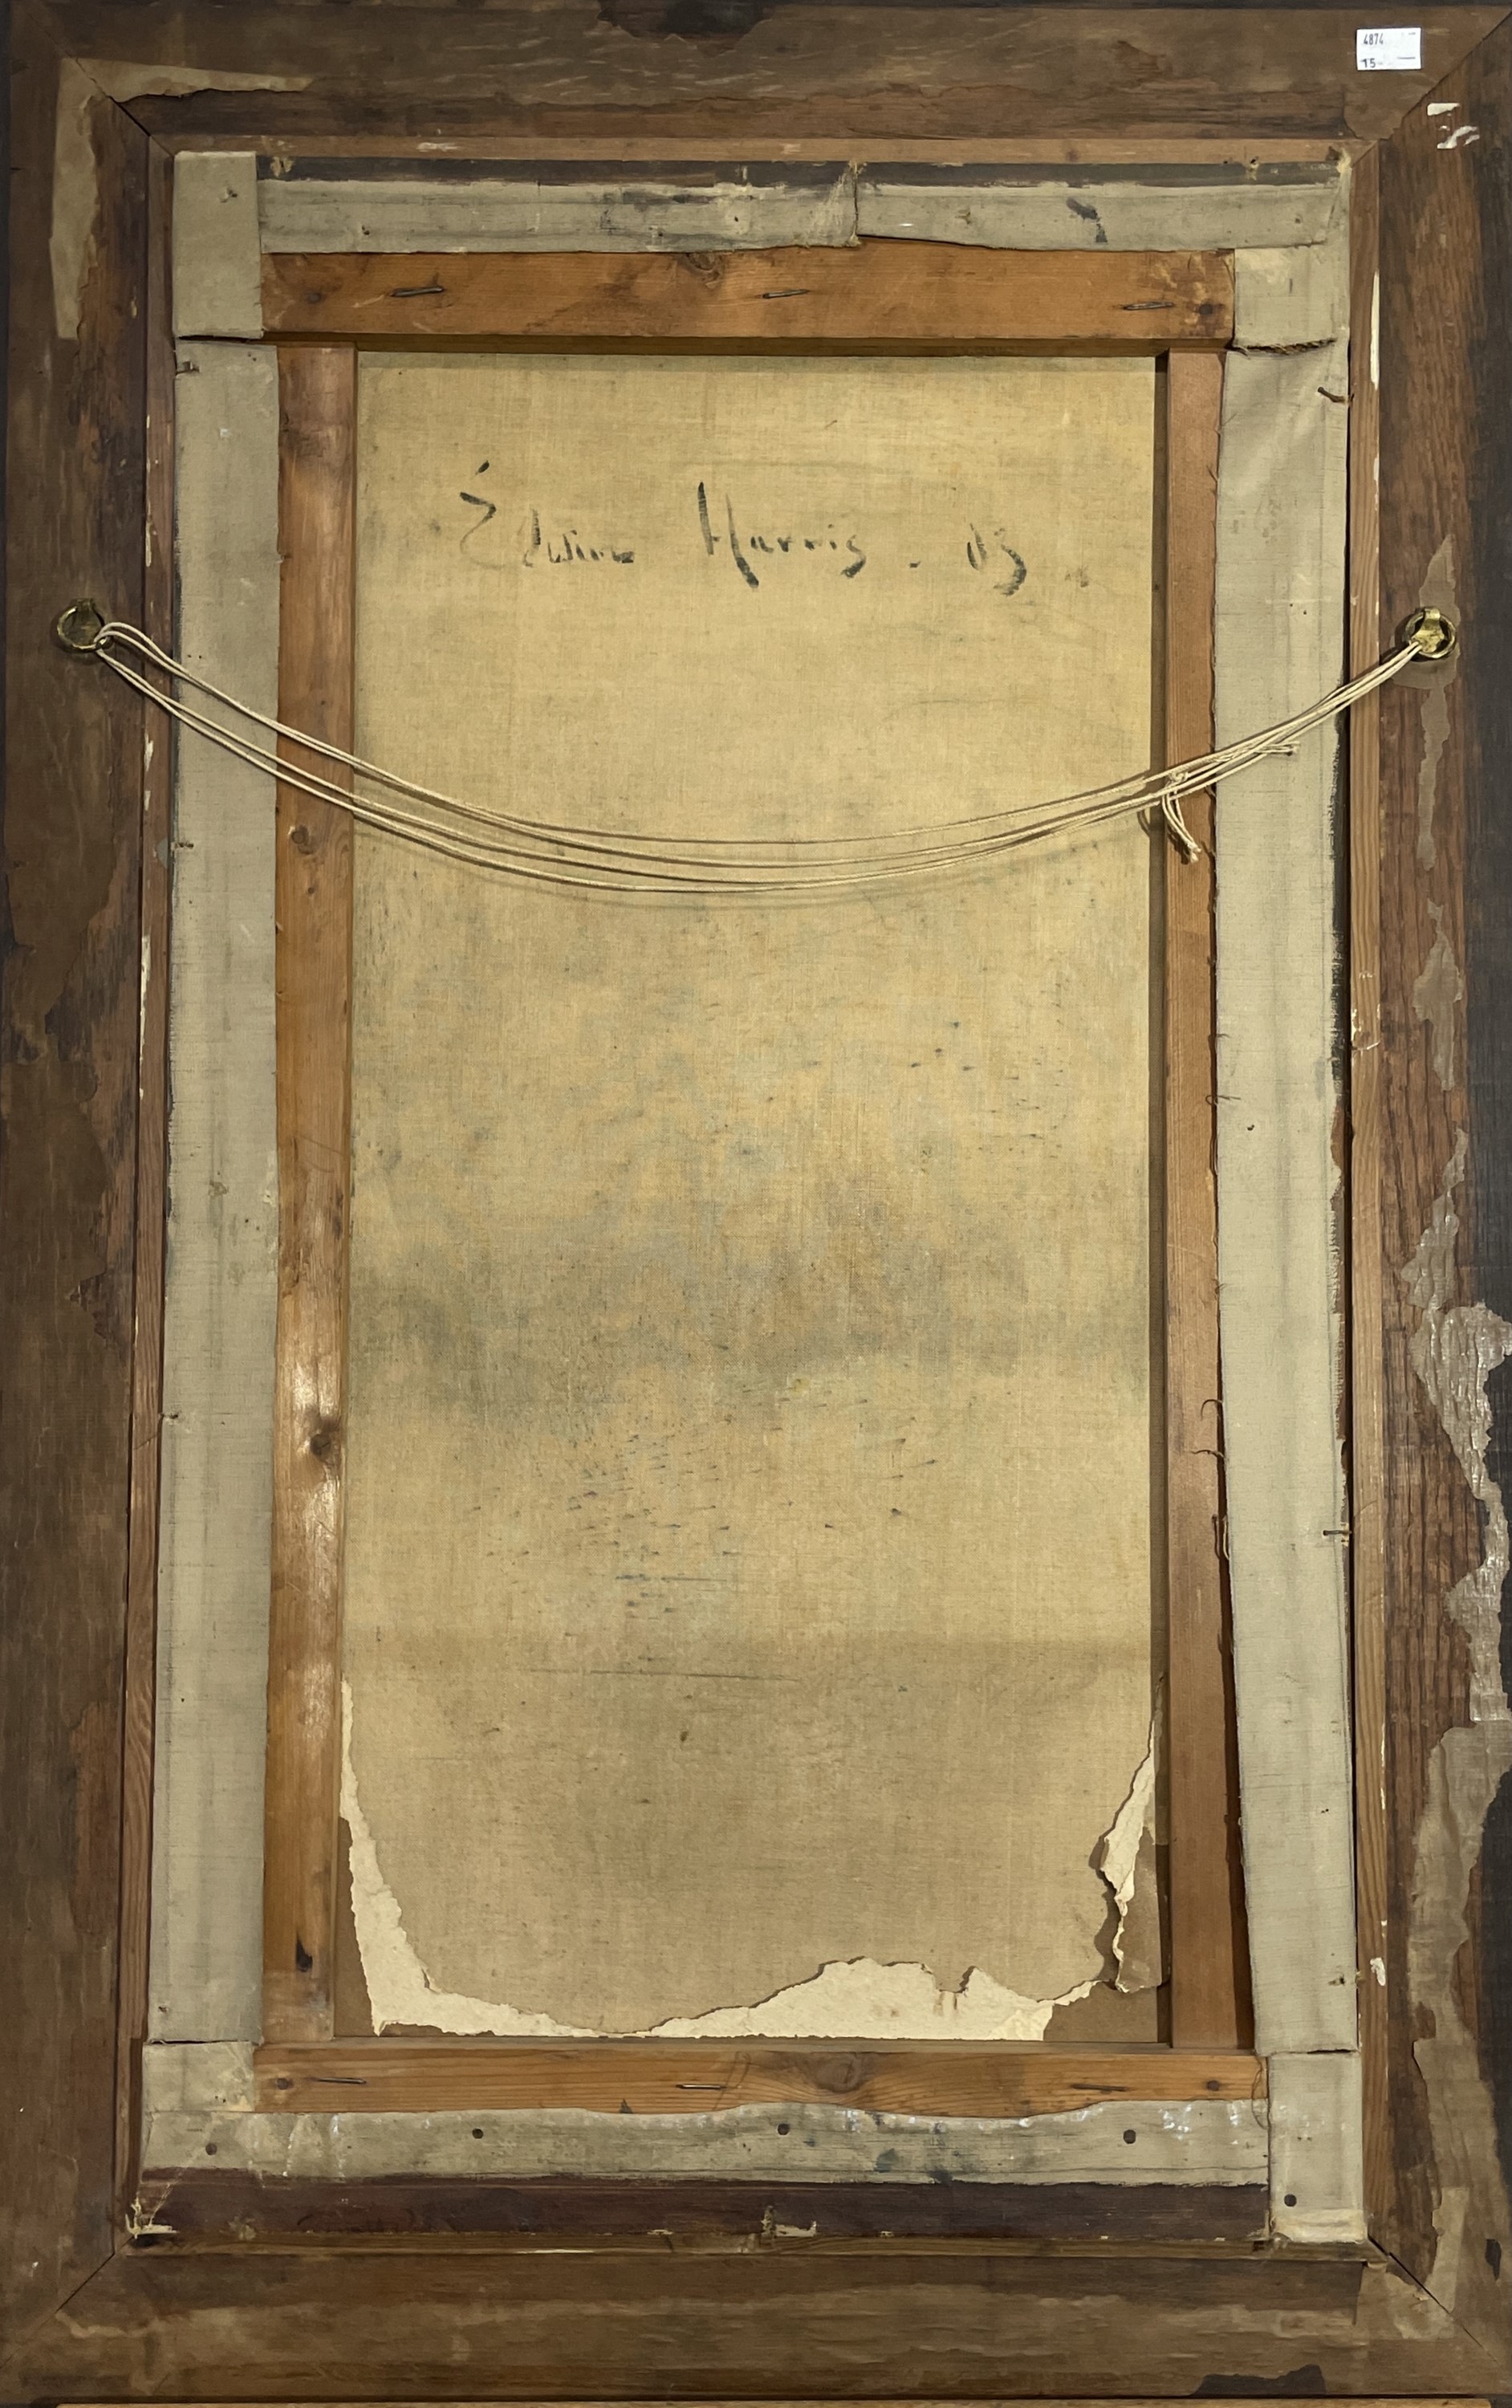 4874
15
Edwin Harris. 03